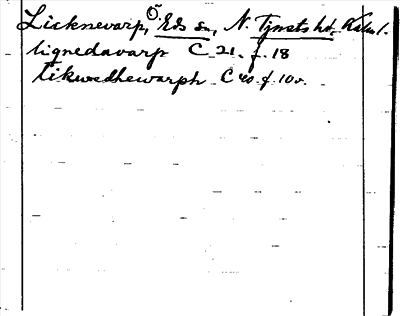 Licknevarp, Ö. Eds sn, N. Tjusts hd. Kalm l.
lignedavarp C 21. f. 18
likwedhewarph C 40 f. 10 v.